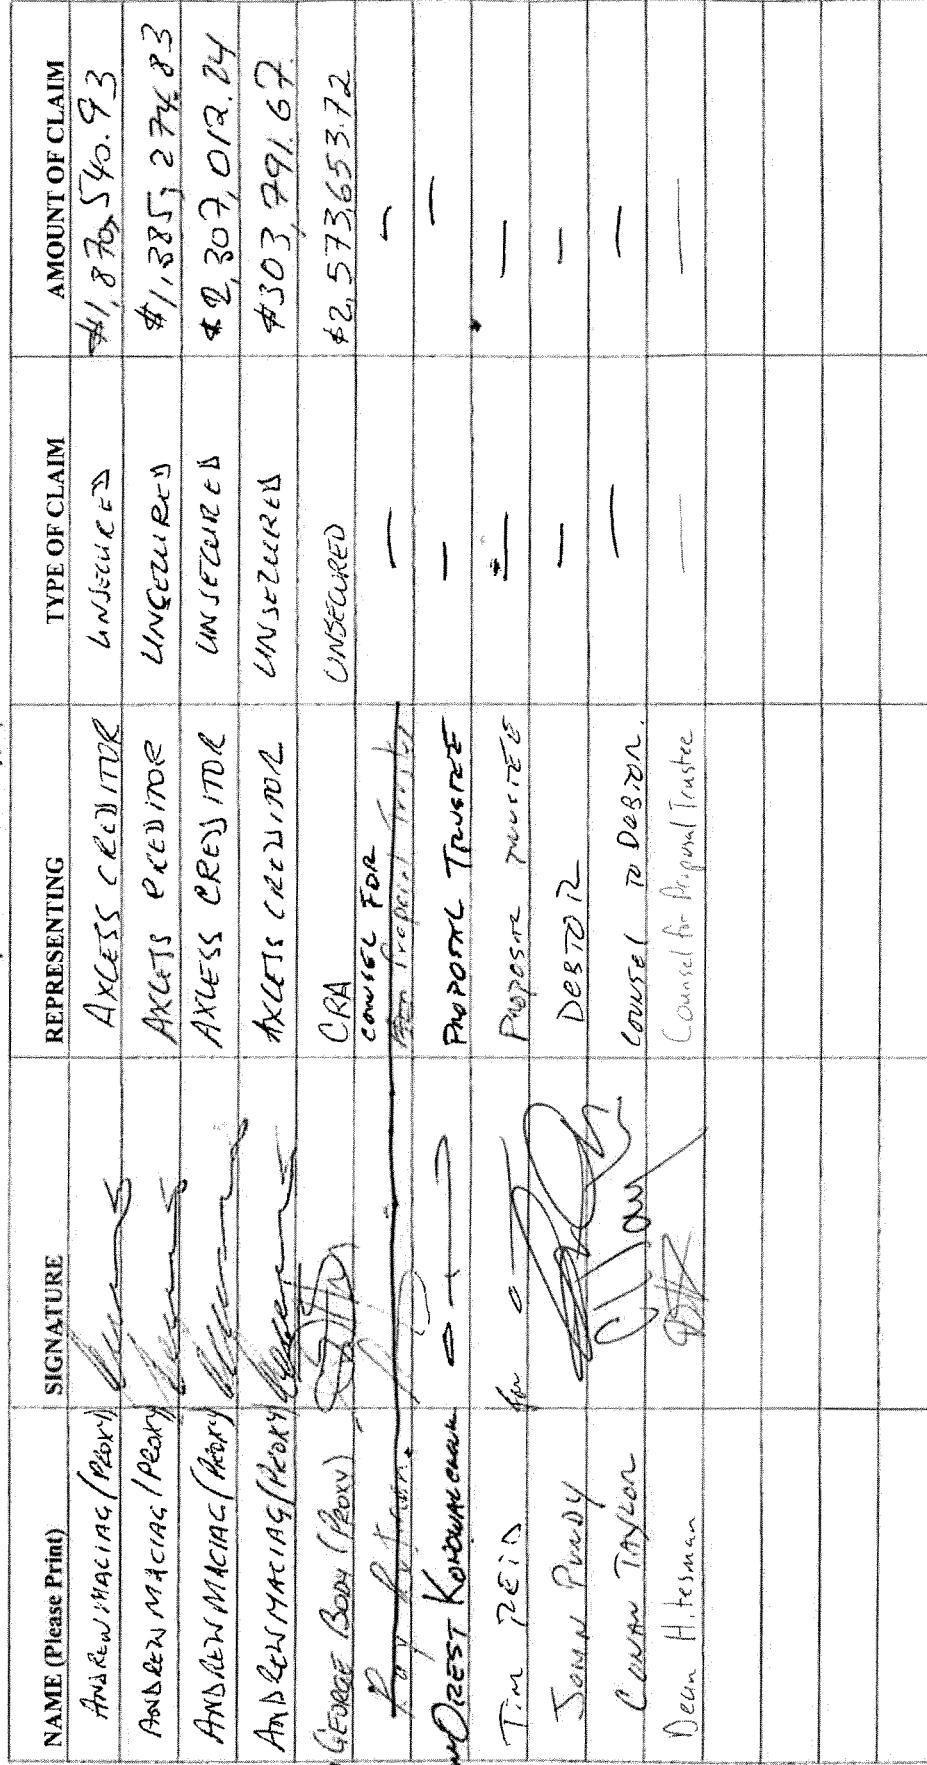 NAME (Please Print) SIGNATURE REPRESENTING TYPE OF CLAIM AMOUNT OF CLAIM
ANDREW MACIAG (PROXY) AXCESS CREDITOR UNSECURED $1,870,540.93
ANDREW MACIAG (PROXY) AXCESS CREDITOR UNSECURED $1,385,274.83
ANDREW MACIAG (PROXY) AXCESS CREDITOR UNSECURED $2,307,012.24
ANDREW MACIAG (PROXY) AXCESS CREDITOR UNSECURED $303,791.67
GEORGE BODY (PROXY) CRA UNSECURED $2,573,653.72
COUNSEL FOR
Proposal Trustee — —
OREST KONOWALCHUK PROPOSAL TRUSTEE — —
TIM REID for PROPOSAL TRUSTEE — —
JOHN PUNDY DEBTOR — —
CONAN TAYLOR C Taylor COUNSEL TO DEBTOR. — —
Dean Hitesman DH Counsel for Proposal Trustee — —